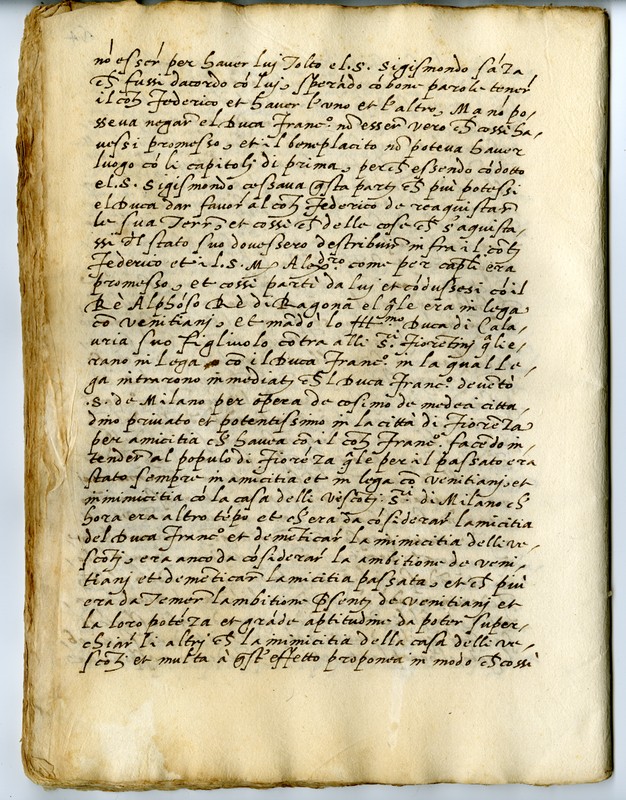 nó esser per haver luj Tolto el .S. Sigismondo sáza
ch̃ fussi dacordo có luj, sperádo có bone parole tener
il cōth Federico et haver l'uno et l'altro, Ma nó po-
sseva negar el Duca Franc.º nō esser vero ch̃ cossi ha-
vessi promesso, et al beneplacito nō poteva haver
luogo có li capitolj di prima, perch̃ essendo códotto
el .S. Sigismondo cessava q̃sta parte ch̃ piu potessi
el Duca dar favor al cōth Federico de reaquistar
le sua Terre, et cossi ch̃ delle cose ch̃ s'aquista-
ssi dl stato suo dovessero destribuir in fra il cōth
Federico et il .S. M. Alex.dro come per cap.li era
promesso, et cossi partì da lui et códussesi có il
Rè Alphóso Rè di Ragona el q̃le era in lega
cō venitianj, et mádò lo Ill.mo Duca di Cala-
uria suo figliuolo cōtra alli S.ri Fiorētinj q̃li e-
rano in lega cō il Duca Franc.º in la qual le-
ga intrarono inmediate ch̃ l Duca Franc.º devētò
.S. de Milano per opera de cosimo de medea citta-
dino privato et potentissimo in la città di Fiorēza
per amicitia ch̃ havea cō il cōth Franc.º facēdo in-
tender al populo di Fioréza q̃le per il passato era
stato sempre in amicitia et in lega cō venitianj, et
in inimicitia có la casa delli vescōtj S.ri di Milano ch̃
hora era altro tépo et ch̃ era da cósiderar lamicitia
del Duca Franc.º et demēticar la inimicitia delli ve-
scōtj, era anco da cósiderar la ambitione de veni-
tianj et demēticar lamicitia passata, et ch̃ piu
era da Temer lambitione p̃sente de venitianj et
la loro potéza et gráde aptitudine da poter super-
chiar li altrj ch̃ la inimicitia della casa delli ve-
scōtj et multa à q̃st' effetto proponea in modo ch̃ cossi